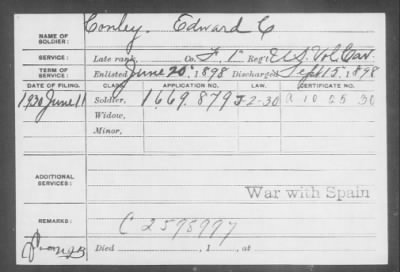 NAME OF SOLDIER: Conley, Edward C
SERVICE: Late rank, Co. F 1" Reg't U.S. Vol. Cav.
TERM OF SERVICE: Enlisted June 20, 1898 Discharged Sept 15, 1898
DATE OF FILING. CLASS. APPLICATION NO. LAW. CERTIFICATE NO.
1930 June 11 Soldier, 1669.879 J-2-30 A 10 05 30
Widow,
Minor,
ADDITIONAL SERVICES:
War with Spain
REMARKS: C 2598997
Died , 1 , at